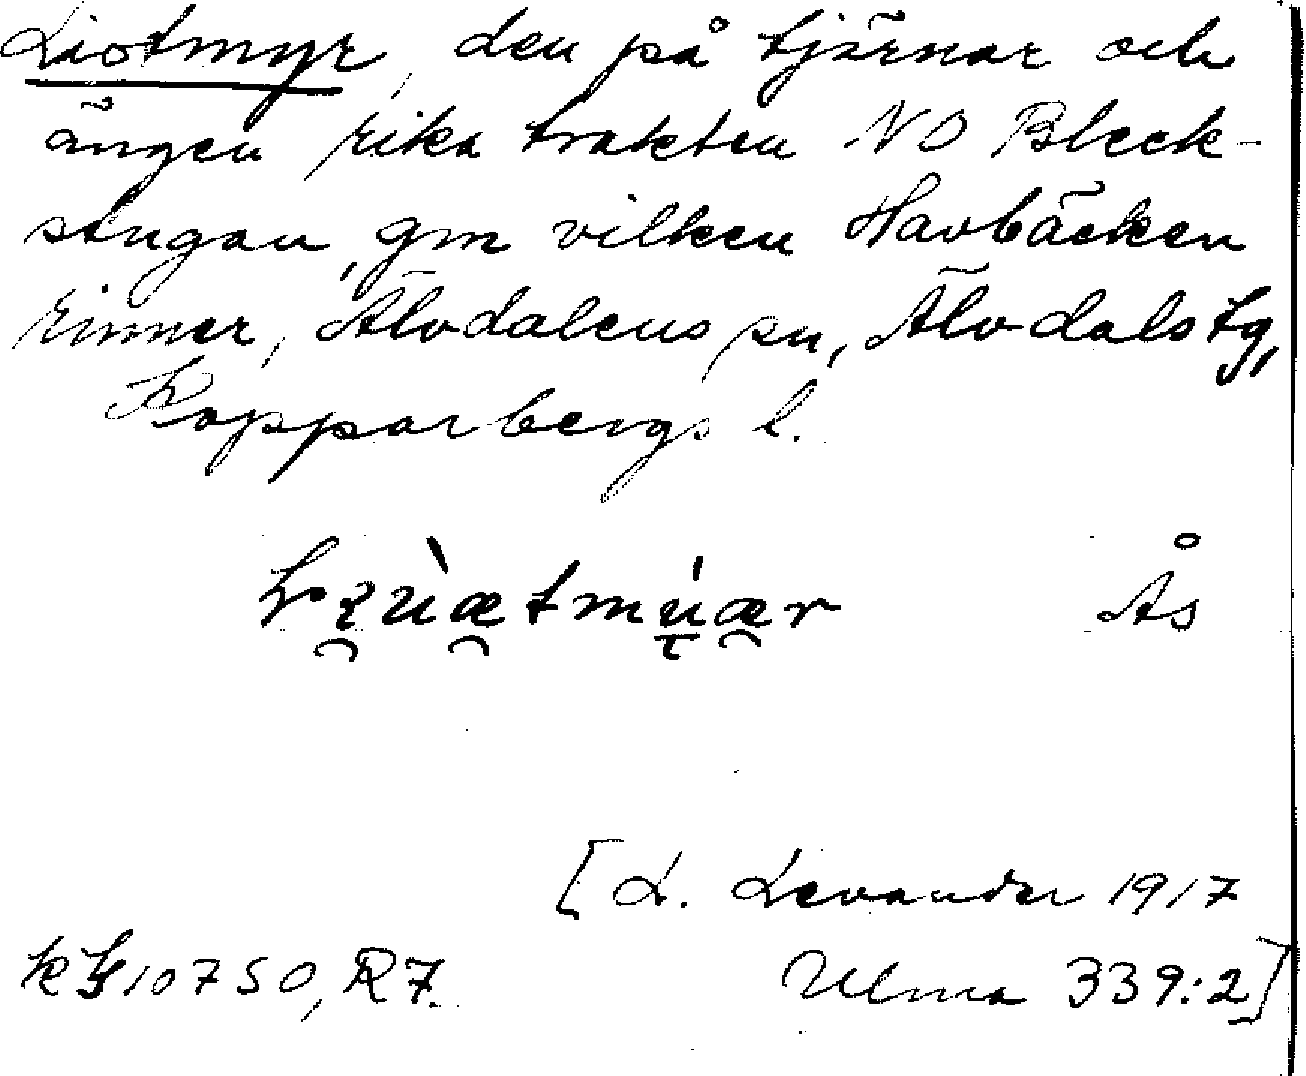 Liotmyr, den på tjärnar och
ängen rika trakten NO Bleck-
stugan, gm vilken Havbäcken
rinner, Älvdalens sn, Älvdals tg,
Kopparbergs l.
Ås
[L. Levander 1917
k bl 10750, R7. Ulma 339:2]